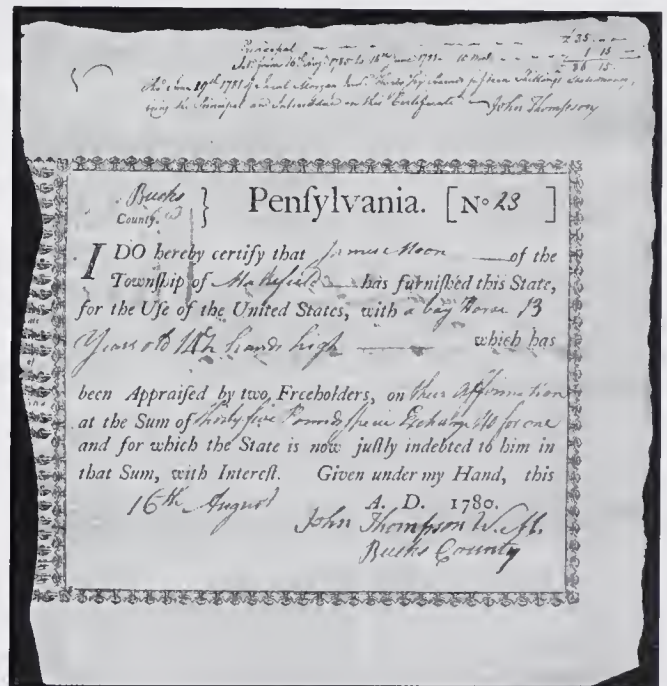 Principal - - - - - £35. - -
Int. from 16th Augt. 1780 to 16th June 1781 - 10 Mos - - 1 15
36 15.
June 19th 1781 of Sarah Morgan Thirty Six Pounds fifteen Shillings
being the Principal and Interest due on this Certificate John Thompson
Bucks
County. } Penſylvania. [No 23 ]
I DO hereby certify that James Moon of the
Townſhip of Makefield has furniſhed this State,
for the Uſe of the United States, with a bay Horse 13
Years old 14½ hands high which has
been Appraiſed by two Freeholders, on their Affirmation
at the Sum of thirty five Pounds Specie Exchange 40 for one
and for which the State is now juſtly indebted to him in
that Sum, with Intereſt. Given under my Hand, this
16th August A. D. 1780.
John Thompson W.M.
Bucks County